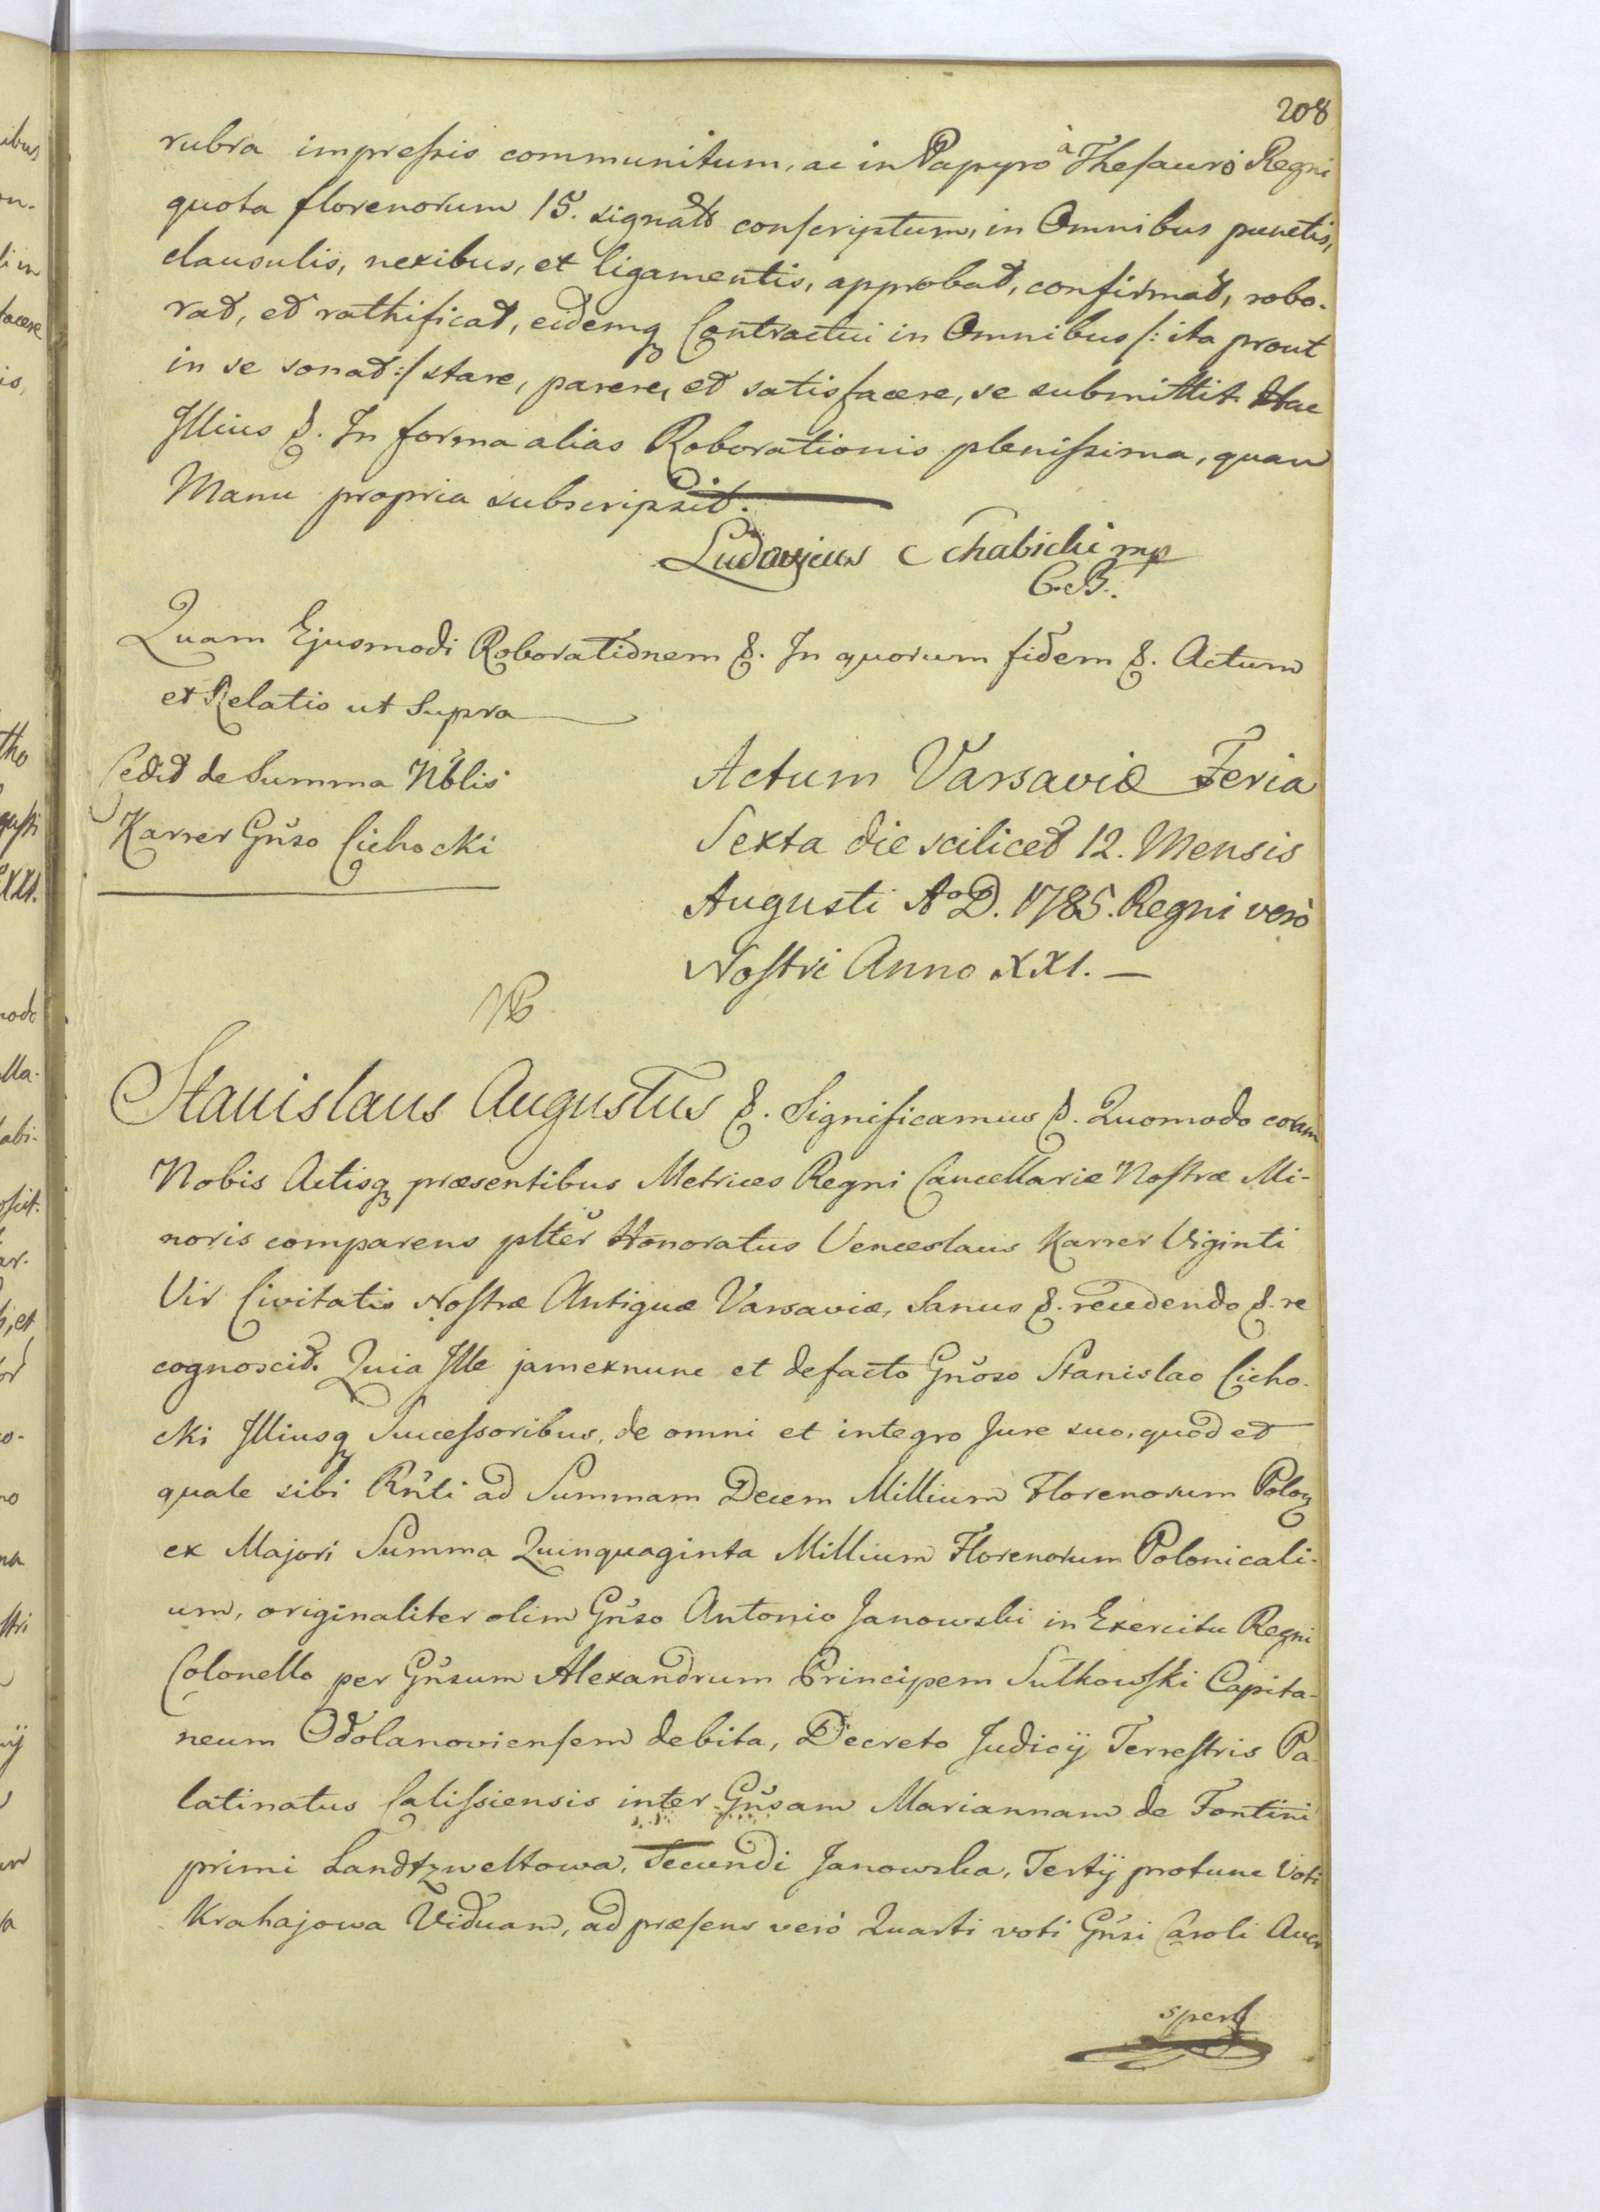 208
rubra impressis communitum, ac in Papyro à Thesauro Regni
quota florenorum 15. signato conscriptum, in Omnibus punctis,
clausulis, nexibus, et ligamentis, approbat, confirmat, robo-
rat, et rathificat, eidemq Contractui in Omnibus /: ita prout
in se sonat :/ stare, parere, et satisfacere, se submittit. Hac
Illius &. In forma alias Roborationis plenissima, quam
Manu propria subscripsit.
Ludovicus Chabicki mp
C. B.
Quam Ejusmodi Roborationem &. In quorum fidem &. Actum
et Relatio ut Supra
Cedit de Summa Nblis
Karrer Gnso Cichocki
Actum Varsaviæ Feria
Sexta die scilicet 12. Mensis
Augusti Ao D. 1785. Regni verò
Nostri Anno XXI. —
Stanislaus Augustus &. Significamus &. Quomodo coram
Nobis Actisq præsentibus Metrices Regni Cancellariæ Nostræ Mi-
noris comparens plter Honoratus Venceslaus Karrer Viginti
Vir Civitatis Nostræ Antiquæ Varsaviæ, Sanus &. recedendo &. re
cognoscit. Quia Ille jam exnunc et defacto Gnoso Stanislao Cicho-
cki Illiusq Successoribus, de omni et integro Jure suo, quod et
quale sibi Rnti ad Summam Decem Millium Florenorum Polonq
ex Majori Summa Quinquaginta Millium Florenorum Polonicali-
um, originaliter olim Gnso Antonio Janowski in Exercitu Regni
Colonello per Gnsum Alexandrum Principem Sułkowski Capita-
neum Odolanoviensem debita, Decreto Judicij Terrestris Pa
latinatus Calissiensis inter Gnsam Mariannam de Fontini
primi Landtzweltowa, Secundi Janowska, Tertij protunc Voti
Krahajowa Viduam, ad præsens verò Quarti voti Gnsi Caroli Auer
sperg